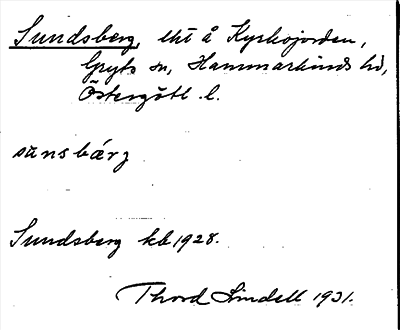 Sundsberg, lht å Kyrkojorden,
Gryts sn, Hammarkinds hd,
Östergötl. l.
sünsbárz
Sundsberg kb 1928.
Thord Lindell 1931.